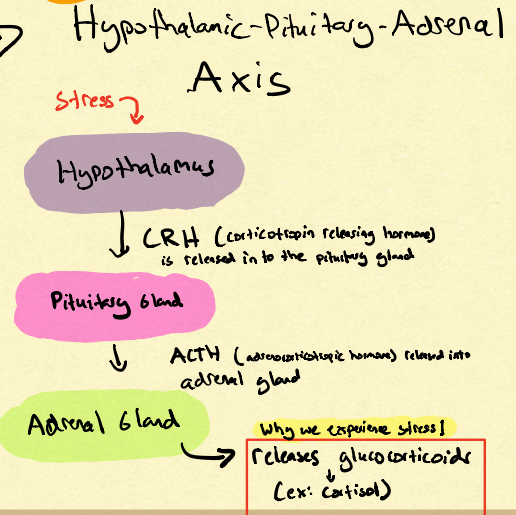 Hypothalamic-Pituitary-Adrenal
Axis
Stress
Hypothalamus
CRH (corticotropin releasing hormone)
is released in to the pituitary gland
Pituitary Gland
ACTH (adrenocorticotropic hormone) released into
adrenal gland
Adrenal Gland
Why we experience stress!
releases glucocorticoids
(ex: cortisol)